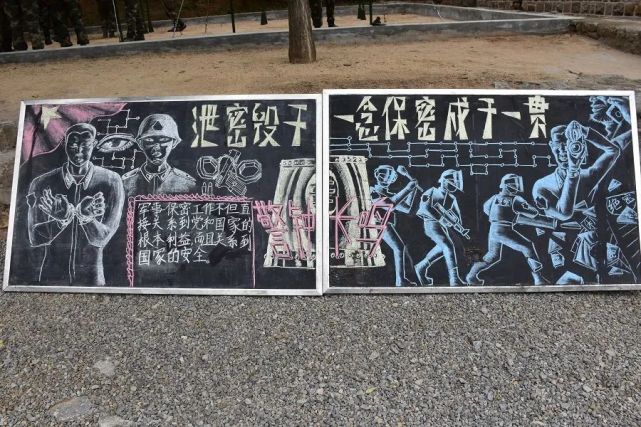 泄密毁于一念保密成于一贯
军事保密工作不但直
接关系到党和国家的
根本利益而且关系到
国家的安全
警钟长鸣